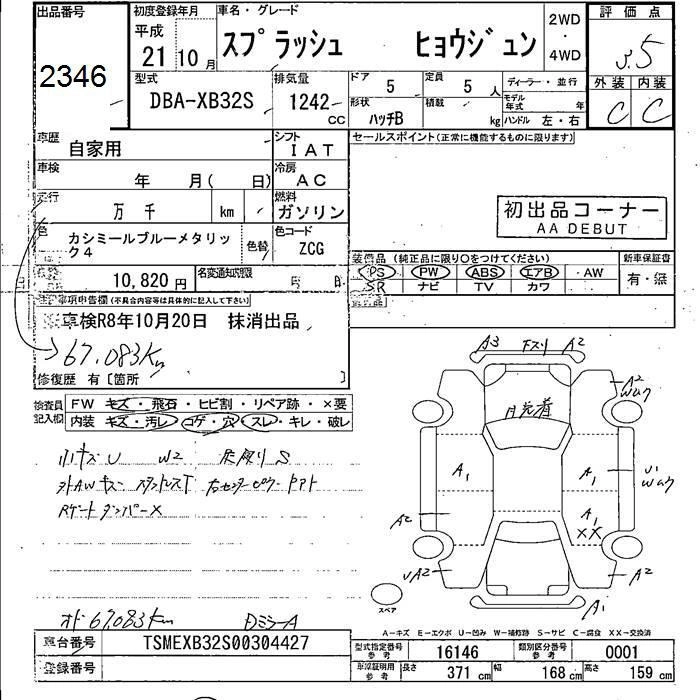 出品番号
2346
初度登録年月
平成
21 10月
車名・グレード
スプラッシュ ヒョウジュン
2WD
・
4WD
評価点
3.5
外装 内装
C C
型式
DBA-XB32S
排気量
1242 cc
ドア
5
定員
5 人
形状
ハッチB
積載
kg
ディーラー・並行
モデル年式 年
ハンドル 左・右
車歴
自家用
シフト
IAT
車検
年 月( 日)
冷房
AC
走行
万 千 km
燃料
ガソリン
色
カシミールブルーメタリック4
色替
色コード
ZCG
10,820円
名変通知期限
月 日
セールスポイント(正常に機能するものに限ります)
初出品コーナー
AA DEBUT
装備品(純正品に限り○をつけてください)
新車保証書
PS PW ABS エアB AW
有・無
SR ナビ TV カワ
事項申告欄(不具合内容等は具体的に記入して下さい)
※車検R8年10月20日 抹消出品
67,083Km
修復歴 有〔箇所 〕
検査員記入欄
FW キズ・飛石・ヒビ割・リペア跡・×要
内装 キズ・汚レ・コゲ・穴・スレ・キレ・破レ
小キズU W2 床張りS
A3 下スリ A2
A2
Wwク
A1
A1
U1
A1
XX
A2
UA2
A2
A1
スペア
オド 67083Km
DミラーA
A-キズ E-エクボ U-凹み W-補修跡 S-サビ C-腐食 XX-交換済
車台番号
TSMEXB32S00304427
登録番号
型式指定番号
参考
16146
類別区分番号
参考
0001
車庫証明用
参考
長さ
371 cm
幅
168 cm
高さ
159 cm